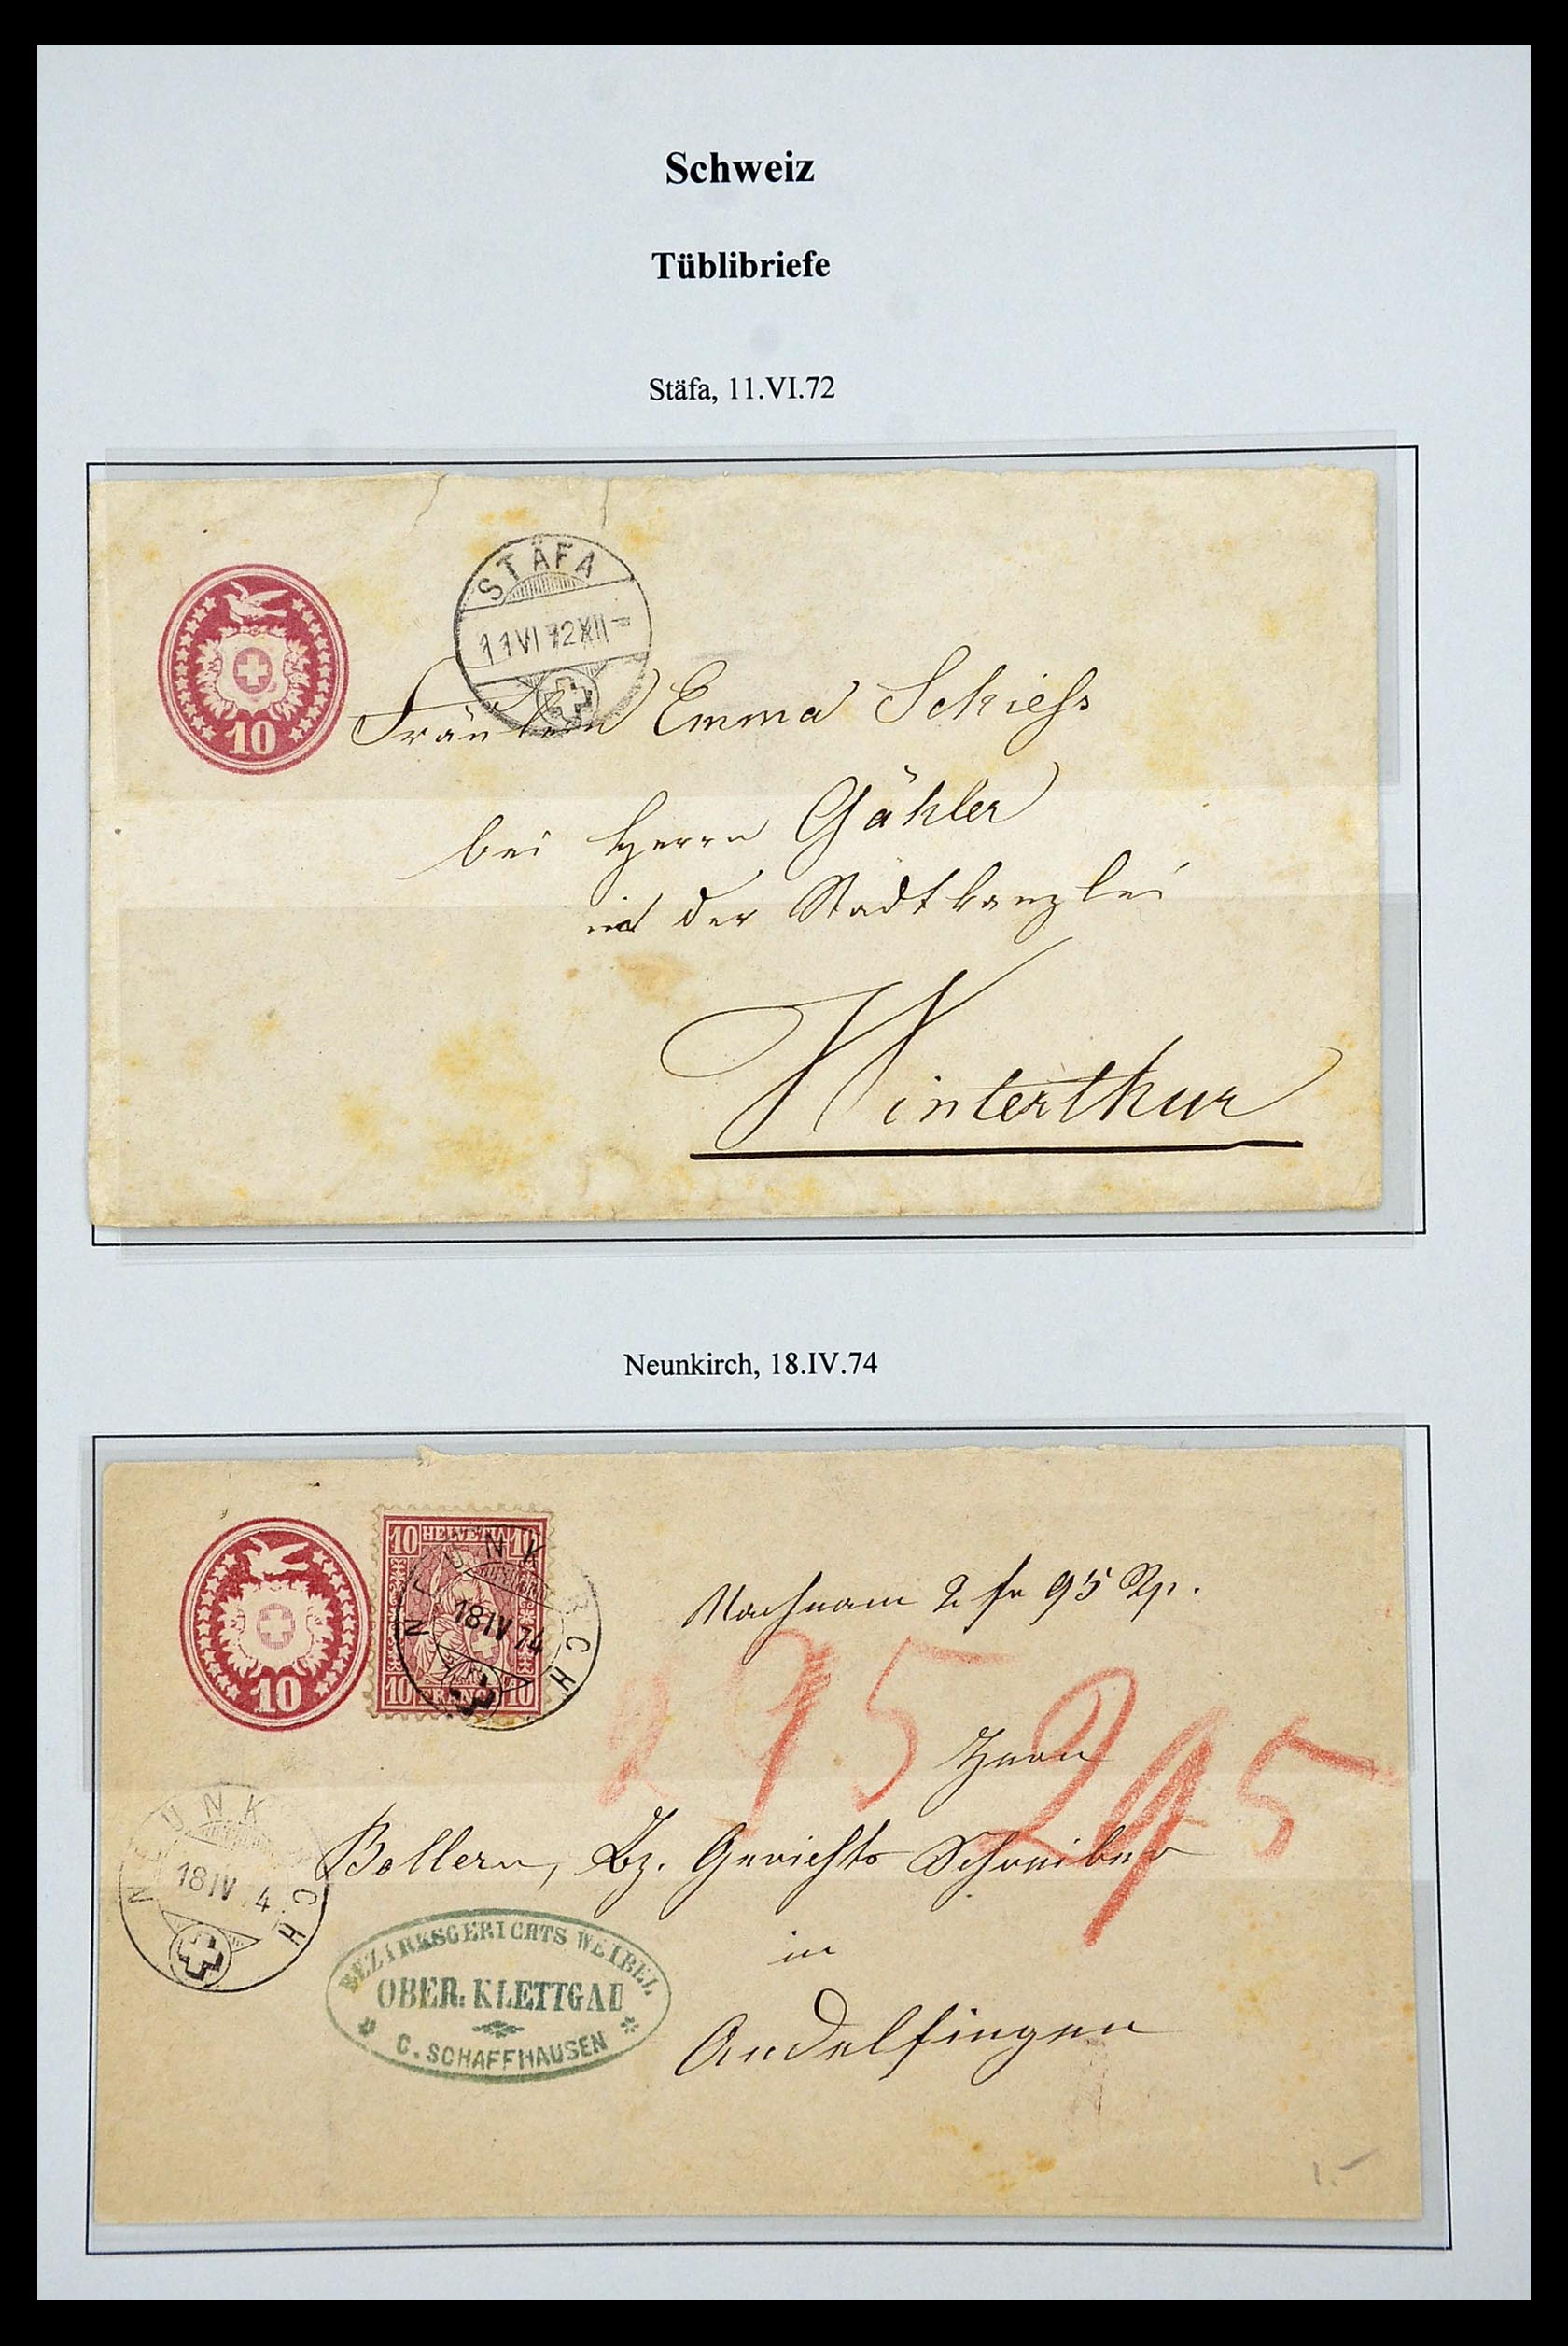 Schweiz
Tüblibriefe
Stäfa, 11.VI.72
10
STÄFA
11 VI 72 XII
Fräulein Emma Schiess
bei Herrn Gähler
in der Stadtkanzlei
Winterthur
Neunkirch, 18.IV.74
10
10 HELVETIA 10
10 FRANCO 10
NEUNKIRCH
18 IV 74
Nachnam 2 fr 95 Rp.
295 295
Herrn
Bollern, Bz. Gerichts Schreiber
in
Andelfingen
NEUNKIRCH
18 IV 74
BEZIRKSGERICHTS WEIBEL
OBER: KLETTGAU
C. SCHAFFHAUSEN
1.-